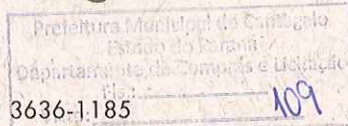 Prefeitura Municipal de Cantagalo
Estado do Paraná
Departamento de Compras e Licitação
3636-1185
109